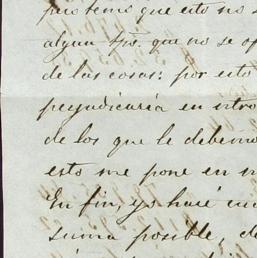 pero temo que esto no s
algun tpo. que no se op
de las cosas: por esto
perjudicaria en intro
de los que le debemo
esto me pone en n
En fin, yo haré cu
suma posible, de